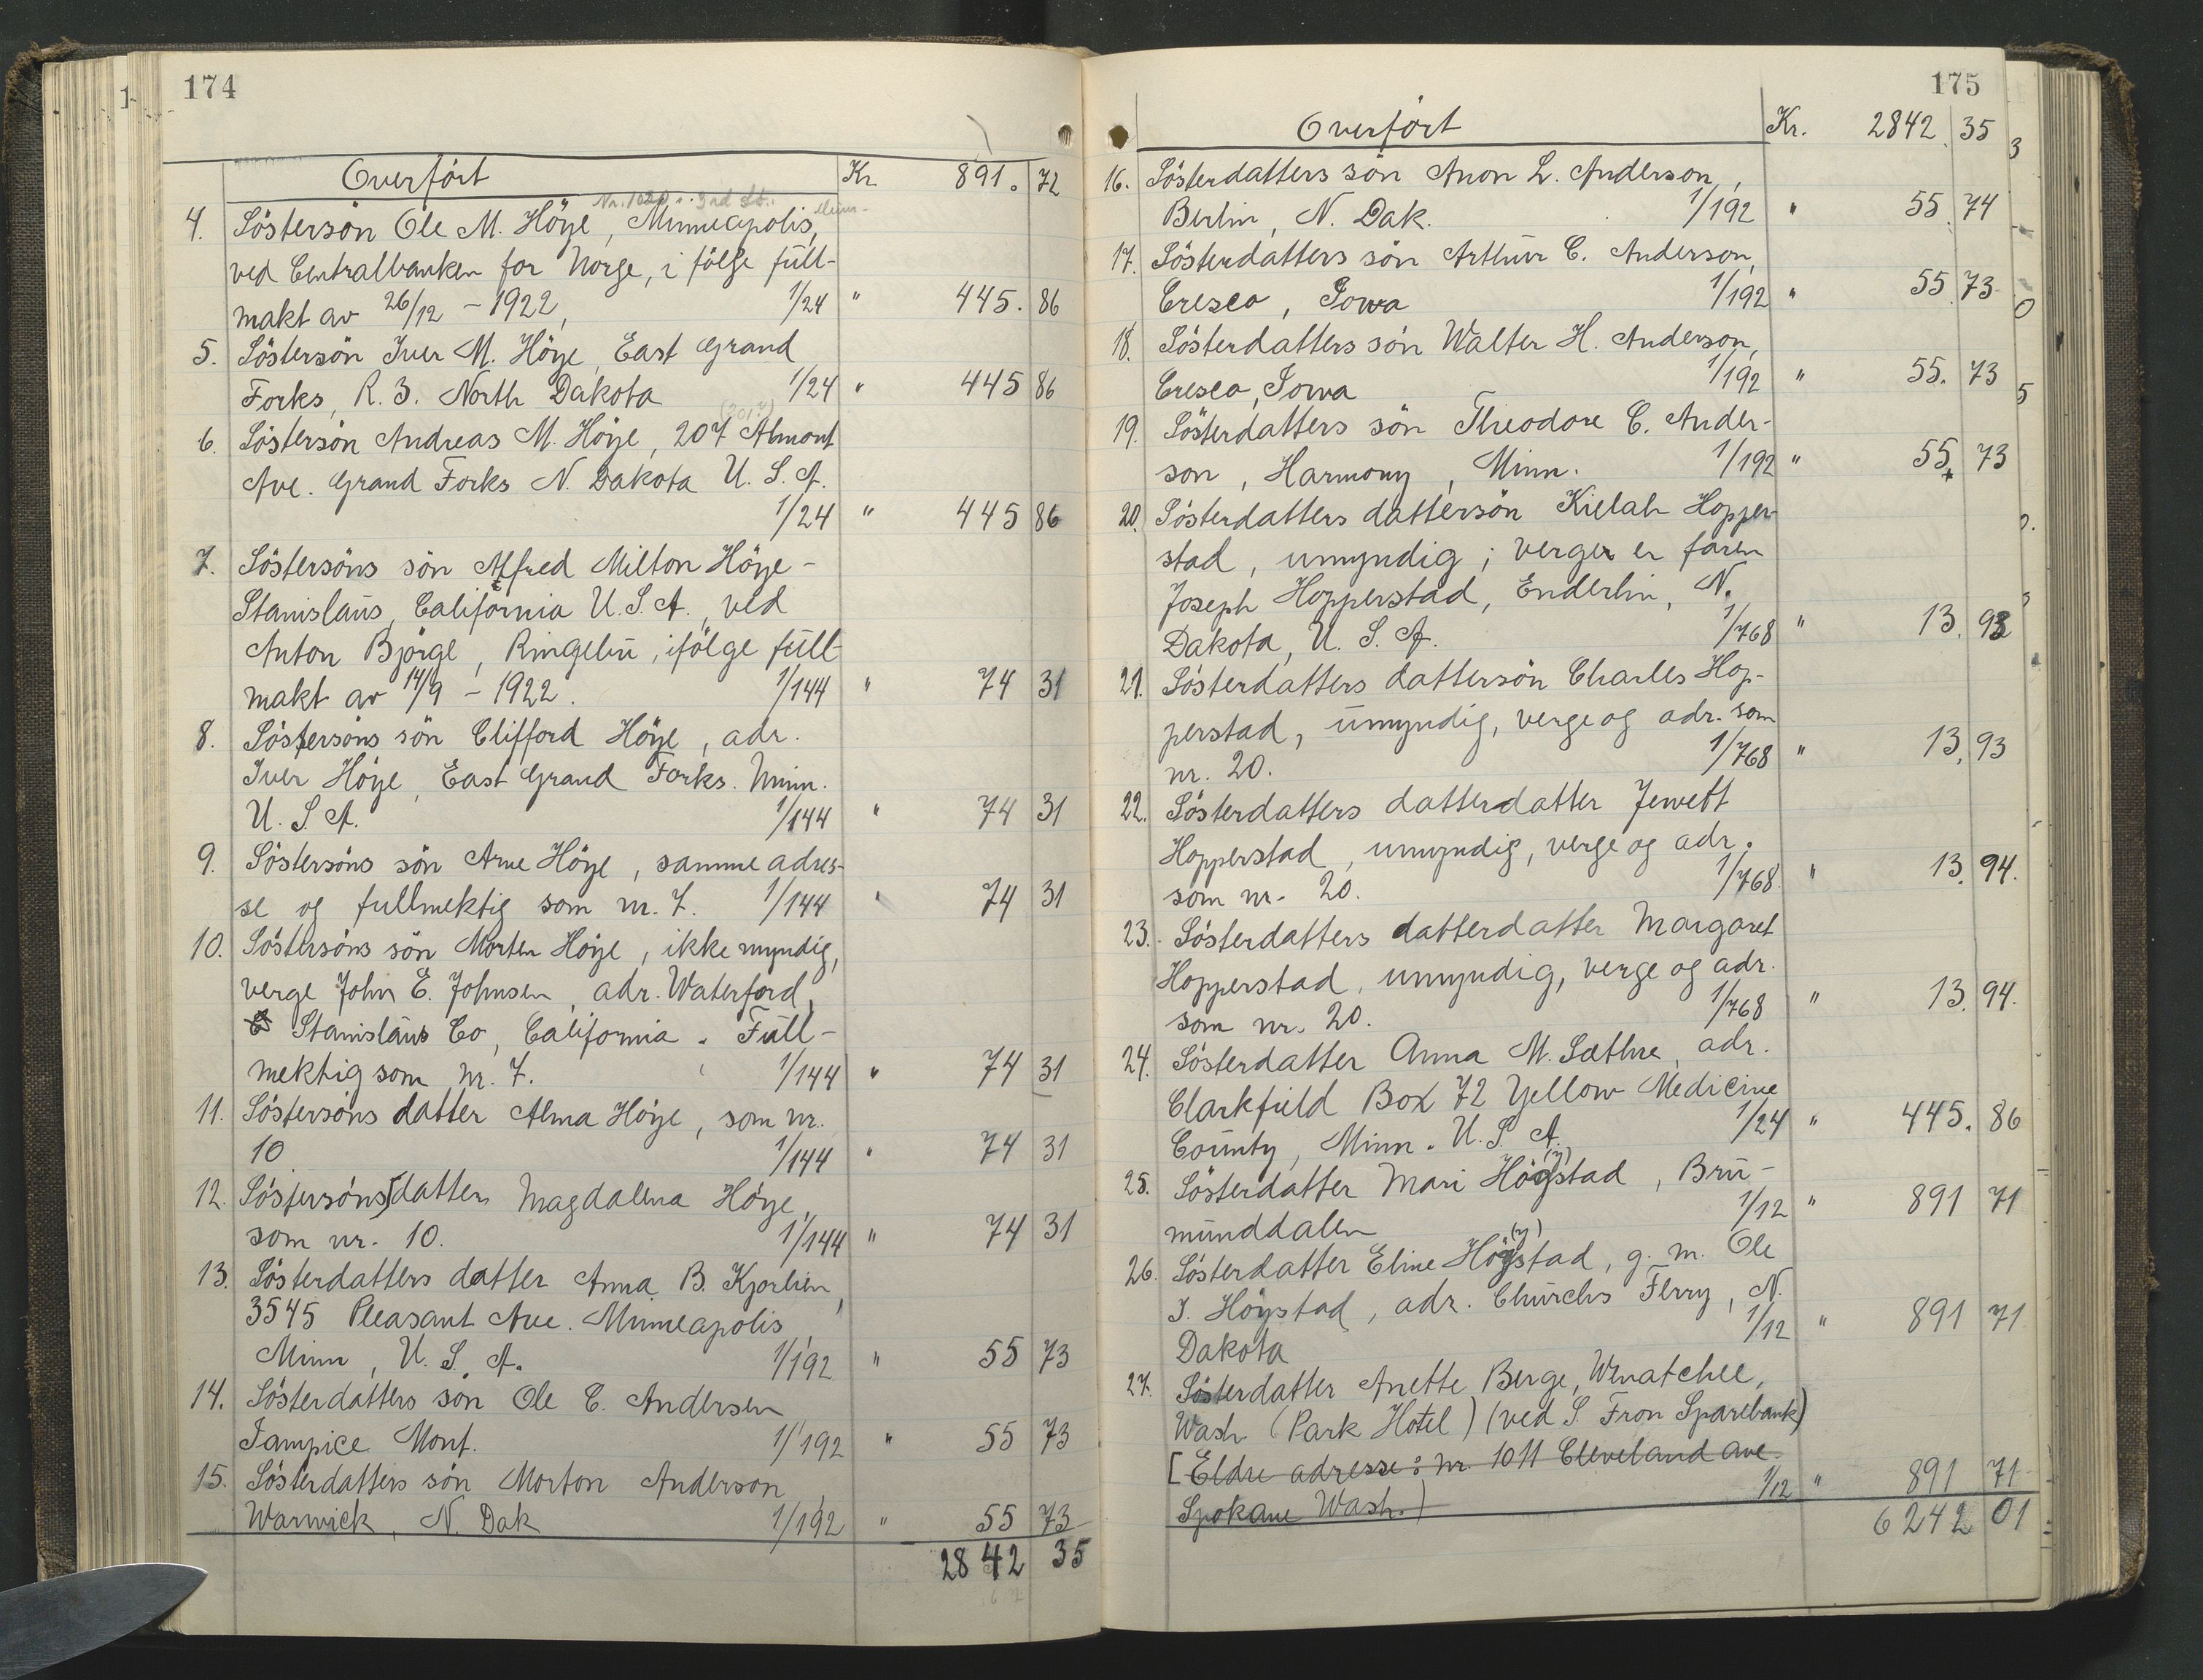 174
Overført Kr 891. 72
Nr. 1020 .. 3rd St. Minn-
4. Söstersön Ole M. Höye, Minneapolis,
ved Centralbanken for Norge, i följe full-
makt av 26/12 - 1922, 1/24 " 445. 86
5. Söstersön Iver M. Höye, East Grand
Forks, R. 3. North Dakota 1/24 " 445 86
(2017)
6. Söstersön Andreas M. Höye, 207 Almont
Ave. Grand Forks N. Dakota U. S. A.
1/24 " 445 86
7. Söstersöns sön Alfred Milton Höye -
Stanislaus, California U. S. A., ved
Anton Björge, Ringebu, ifölge full-
makt av 14/9 - 1922. 1/144 " 74 31
8. Söstersöns sön Clifford Höye, adr.
Iver Höye, East Grand Forks. Minn.
U. S. A. 1/144 " 74 31
9. Söstersöns sön Arne Höye, samme adres-
se og fullmektig som nr. 7. 1/144 " 74 31
10. Söstersöns sön Morten Höye, ikke myndig,
verge John E. Johnsen, adr. Waterford,
Stanislaus Co, California. Full-
mektig som nr. 7. 1/144 " 74 31
11. Söstersöns datter Alma Höye, som nr.
10 1/144 " 74 31
12. Söstersöns datter Magdalena Höye,
som nr. 10. 1/144 " 74 31
13. Sösterdatters datter Anna B. Kjorlien,
3545 Pleasant Ave. Minneapolis,
Minn, U. S. A. 1/192 " 55 73
14. Sösterdatters sön Ole C. Andersen
Tampice Mont. 1/192 " 55 73
15. Sösterdatters sön Morton Anderson,
Warwick, N. Dak 1/192 " 55 73
2842 35
175
Overført Kr. 2842. 35
16. Sösterdatters sön Anon L. Anderson,
Berlin, N. Dak. 1/192 " 55. 74
17. Sösterdatters sön Arthur C. Anderson,
Cresco, Iowa 1/192 " 55. 73
18. Sösterdatters sön Walter H. Anderson,
Cresco, Iowa 1/192 " 55. 73
19. Sösterdatters sön Theodore C. Ander-
son, Harmony, Minn. 1/192 " 55. 73
20. Sösterdatters dattersön Kielah Hopper-
stad, umyndig; verge er faren
Joseph Hopperstad, Enderlin, N.
Dakota, U. S. A. 1/768 " 13. 93
21. Sösterdatters dattersön Charles Hop-
perstad, umyndig, verge og adr. som
nr. 20. 1/768 " 13. 93
22. Sösterdatters datterdatter Jewett
Hopperstad, umyndig, verge og adr.
som nr. 20. 1/768 " 13. 94.
23. Sösterdatters datterdatter Margaret
Hopperstad, umyndig, verge og adr.
som nr. 20. 1/768 " 13. 94.
24. Sösterdatter Anna M. Sæthre, adr.
Clarkfield Box 72 Yellow Medicine
County, Minn. U. S. A. 1/24 " 445. 86
(y)
25. Sösterdatter Mari Högstad, Bru-
munddalen 1/12 " 891 71
(y)
26. Sösterdatter Eline Högstad, g. m. Ole
I. Höystad, adr. Churchs Ferry, N.
Dakota 1/12 " 891 71
27. Sösterdatter Anette Berge, Wenatchee,
Wash (Park Hotel) (ved S. Fron Sparebank)
[Eldre adresse: nr. 1011 Cleveland ave.
Spokane Wash.) 1/12 " 891 71
6242 01